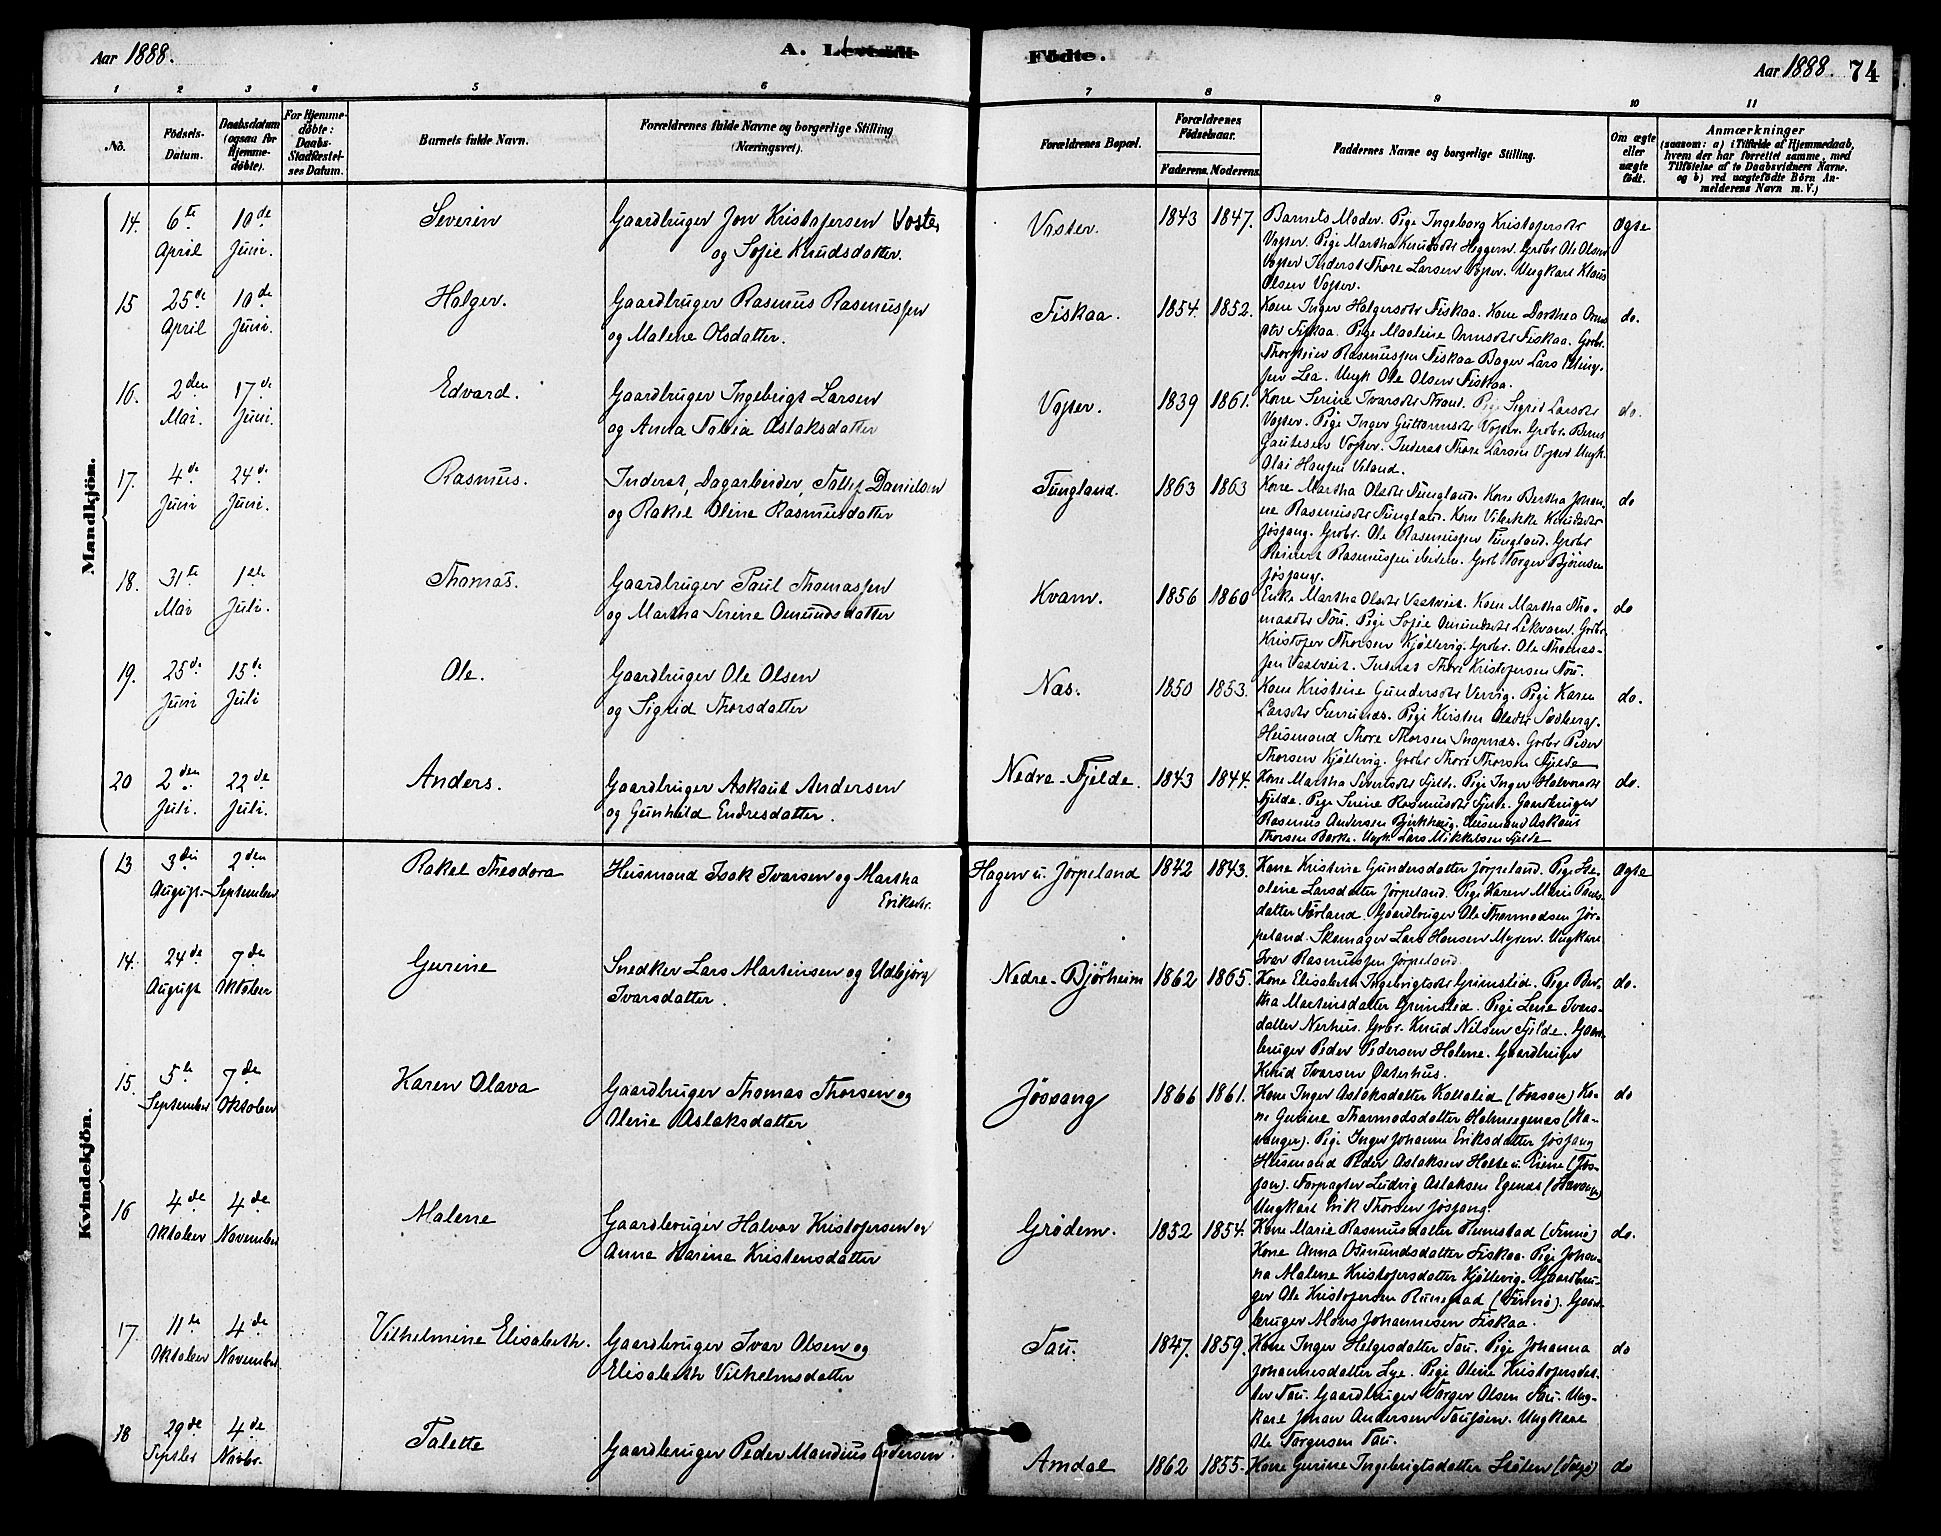 Aar 1888.
A. Levende
Födte.
Aar 1888. 74
1 2 3 4 5 6 7 8 9 10 11
No.
Födsels-Datum.
Daabsdatum (ogsaa for Hjemme-döbte).
For Hjemme-döbte: Daabs-Stadfæstel-ses Datum.
Barnets fulde Navn.
Forældrenes fulde Navne og borgerlige Stilling (Næringsvei).
Forældrenes Bopæl.
Forældrenes Födselsaar.
Faderens. Moderens.
Faddernes Navne og borgerlige Stilling.
Om ægte eller uægte födt.
Anmærkninger
(saasom: a) i Tilfælde af Hjemmedaab, hvem der har forrettet samme, med Tilföielse af to Daabsvidners Navne. og b) ved uægtefödte Börn An-melderens Navn m. V.)
Mandkjön.
14. 6te April 10de Juni. Severin
Gaardbruger Jon Kristofersen Voster
og Sofie Knudsdatter.
Voster. 1843 1847.
Barnets Moder. Pige Ingeborg Kristofersdtr
Voster. Pige Martha Knudsdtr Heggem. Grdbr Ole Olsen
Voster Inderst Thore Larsen Voster. Ungkarl Klaus
Olsen Voster.
Ægte
15 25de April 10de Juni. Holger.
Gaardbruger Rasmus Rasmussen
og Malene Olsdatter.
Fiskaa. 1854. 1852.
Kone Inger Holgersdtr Fiskaa. Kone Dorthea
Fiskaa. Pige Fiskaa. Grdbr.
Rasmussen Fiskaa Bager Lars
Lea. Ungk Ole Olsen Fiskaa.
do.
16. 2den Mai. 17de Juni. Edvard.
Gaardbruger Ingebrigt Larsen
og Anna Tobia Aslaksdatter
Voster. 1839 1861.
Kone Serine Ivarsdtr Strand. Pige Sigrid Larsdtr
Voster. Pige Inger Guttormsdtr Voster. Grdbr.
Gautesen Voster. Inderst Thore Larsen Voster Ungk.
Olai Hansen
do.
17. 4de Juni 24de Juni. Rasmus.
Inderst, Dagarbeider, Tollef Danielsen
og Rakel Oline Rasmusdatter
Tungland. 1863 1863
Kone Martha Olsdtr Tungland. Kone Bertha Johan-
ne Rasmusdtr Tungland. Kone Knudsdtr
Jøssang. Grdbr. Ole Rasmussen Tungland. Grdbr
Reinert Rasmussen ibidem. Grdb Torger Bjørnsen
Jøssang.
do
18. 31te Mai 1ste Juli. Thomas.
Gaardbruger Paul Thomassen
og Martha Serine Omundsdatter
Kvam. 1856 1860
Enke Martha Olsdtr Vastveit. Kone Martha Tho-
masdtr Tou. Pige Sofie Omundsdtr Lekvam. Grdbr.
Kristofer Thorsen Kjøllevig. Grdbr. Ole Thomas-
sen Vastveit. Inderst Thore Kristofersen Tou.
do
19. 25de Juni 15de Juli Ole.
Gaardbruger Ole Olsen
og Sigrid Thorsdatter
Næs. 1850 1853.
Kone Kristine Gundersdtr Vervig. Pige Karen
Larsdtr Pige Kirsten Olsdtr Solberg.
Husmand Thore Thorsen Grdbr Peder
Thorsen Kjöllevig. Grdbr Thore Thorsen Fjelde
do.
20 2den Juli. 22de Juli. Anders.
Gaardbruger Askaut Andersen
og Gunhild Endresdatter.
Nedre-Fjelde. 1843 1844.
Kone Martha Sivertsdtr Fjelde. Pige Inger Halvorsdtr
Fjelde. Pige Serine Rasmusdtr Fjelde. Gaardbruger
Rasmus Andersen Bjerkhaug. Husmand Askaut
Thorsen Barke. Ungk. Lars Mikkelsen Fjelde
do.
Kvindekjön.
13 3die August 2den September Rakel Theodora
Husmand Isak Ivarsen og Martha
Eriksdtr.
Hagen u. Jørpeland 1842 1843.
Kone Kristine Gundersdatter Jørpeland. Pige Se-
oline Larsdatter Jørpeland. Pige Karen Marie Peders-
datter Førland. Gaardbruger Ole Thormodsen Jør-
peland. Skomager Lars Hansen Myren. Ungkarl
Ivar Rasmussen Jørpeland.
Ægte
14. 24de August 7de Oktober Gurine
Snedker Lars Martinsen og Udbjørg
Ivarsdatter.
Nedre-Bjørheim 1862 1865.
Kone Elisabeth Ingebrigtsdtr Grimslid. Pige Ber-
tha Martinsdatter Grimslid. Pige Lene Ivars-
datter Nerhus. Grdbr. Knud Nilsen Fjelde. Gaard-
bruger Peder Pedersen Holene. Gaardbruger
Knud Ivarsen Østerhus.
do.
15. 5te September 7de Oktober Karen Olava
Gaardbruger Thomas Thorsen og
Oline Aslaksdatter
Jøssang 1866 1861.
Kone Inger Aslaksdatter Kallalid (Fossan) Ko-
ne Gurine Thormodsdatter Holmegenæs (Sta-
vanger). Pige Inger Johanne Eriksdatter Jøssang
Husmand Peder Aslaksen Holte u. (Fos-
san). Forpagter Ludvig Aslaksen Egenæs (Stavang)
Ungkarl Erik Thorsen Jøssang.
do
16 4de Oktober 4de November Malene
Gaardbruger Halvor Kristofersen og
Anna Karine Kristensdatter
Grødem. 1852 1854.
Kone Marie Rasmusdatter Runestad (Finnø)
Kone Anna Osmundsdatter Fiskaa. Pige Johan-
na Malene Kristofersdatter Kjöllevig. Gaardbru-
ger Ole Kristofersen Runestad (Finnø). Gaard-
bruger Mons Johannesen Fiskaa.
do.
17. 11te Oktober 4de November Vilhelmine Elisabeth.
Gaardbruger Ivar Olsen og
Elisabeth Vilhelmsdatter
Tau. 1847. 1859.
Kone Inger Helgesdatter Tau. Pige Johanna
Johannesdatter Lye. Pige Oline Kristofersdat-
ter Tau. Gaardbruger Torger Olsen Tau. Ung-
karl Johan Andersen Tausjøen. Ungkarl
Ole Torgersen Tau.
do
18 29de Septbr 4de Novbr. Talette
Gaardbruger Peder Mandius Pedersen
Amdal 1862 1855.
Kone Gurine Ingebrigtsdatter Stølen
do